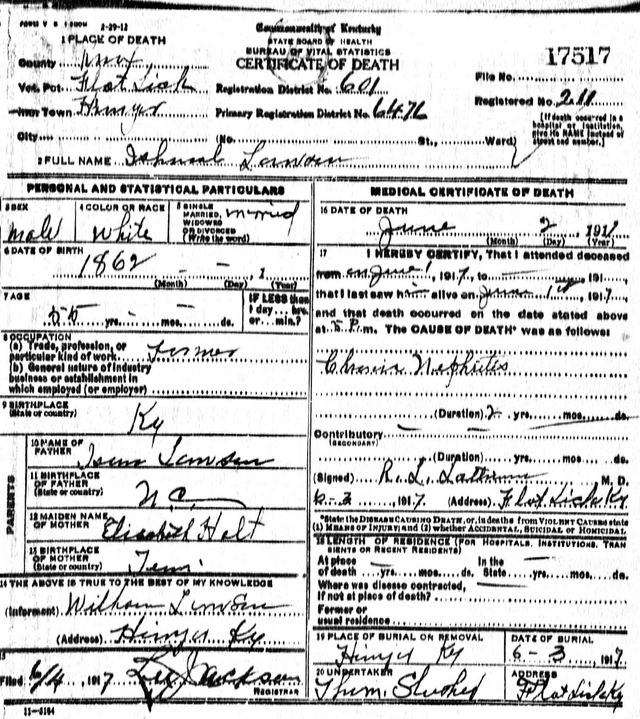 2-29-12
Commonwealth of Kentucky
STATE BOARD OF HEALTH
BUREAU OF VITAL STATISTICS
CERTIFICATE OF DEATH
17517
1 PLACE OF DEATH
County Knox
Vot. Pct. Flat Lick Registration District No. 601 File No.
Town Hinyer Primary Registration District No. 6476 Registered No. 211
[If death occurred in a hospital or institution, give its NAME instead of street and number.]
City (No. St., Ward)
2 FULL NAME Ishmal
PERSONAL AND STATISTICAL PARTICULARS
3 SEX Male
4 COLOR OR RACE White
5 SINGLE MARRIED, WIDOWED OR DIVORCED (Write the word) Married
6 DATE OF BIRTH
1862 — — , 1
(Month) (Day) (Year)
7 AGE
55 yrs. — mos. ds.
IF LESS than 1 day ... hrs. or ... min.?
8 OCCUPATION
(a) Trade, profession, or particular kind of work Farmer
(b) General nature of industry business or establishment in which employed (or employer)
9 BIRTHPLACE
(State or country) Ky
PARENTS
10 NAME OF FATHER
11 BIRTHPLACE OF FATHER (State or country) N.C.
12 MAIDEN NAME OF MOTHER Elisabeth Holt
13 BIRTHPLACE OF MOTHER (State or country) Tenn
14 THE ABOVE IS TRUE TO THE BEST OF MY KNOWLEDGE
(Informant) William
(Address) Hinyer Ky
15
Filed 6/4, 1917 Jackson
REGISTRAR
11-3184
MEDICAL CERTIFICATE OF DEATH
16 DATE OF DEATH
June 2 1917
(Month) (Day) (Year)
17 I HEREBY CERTIFY, That I attended deceased
from on June 1, 1917, to — , 191
that I last saw him alive on June 1st, 1917,
and that death occurred on the date stated above
at P.m. The CAUSE OF DEATH* was as follows:
Chronic Nephritis
(Duration) 2 yrs. mos. ds.
Contributory
(SECONDARY)
(Duration) yrs. mos. ds.
(Signed) R. L. M. D.
6-3, 1917 (Address) Flat Lick Ky
*State the DISEASE CAUSING DEATH, or, in deaths from VIOLENT CAUSES state (1) MEANS OF INJURY; and (2) whether ACCIDENTAL, SUICIDAL OR HOMICIDAL
18 LENGTH OF RESIDENCE (FOR HOSPITALS, INSTITUTIONS, TRANSIENTS OR RECENT RESIDENTS)
At place of death yrs. mos. ds. In the State yrs. mos. ds.
Where was disease contracted, if not at place of death?
Former or usual residence
19 PLACE OF BURIAL OR REMOVAL
Hinyer Ky
DATE OF BURIAL
6-3, 1917
20 UNDERTAKER
ADDRESS
Flat Lick Ky